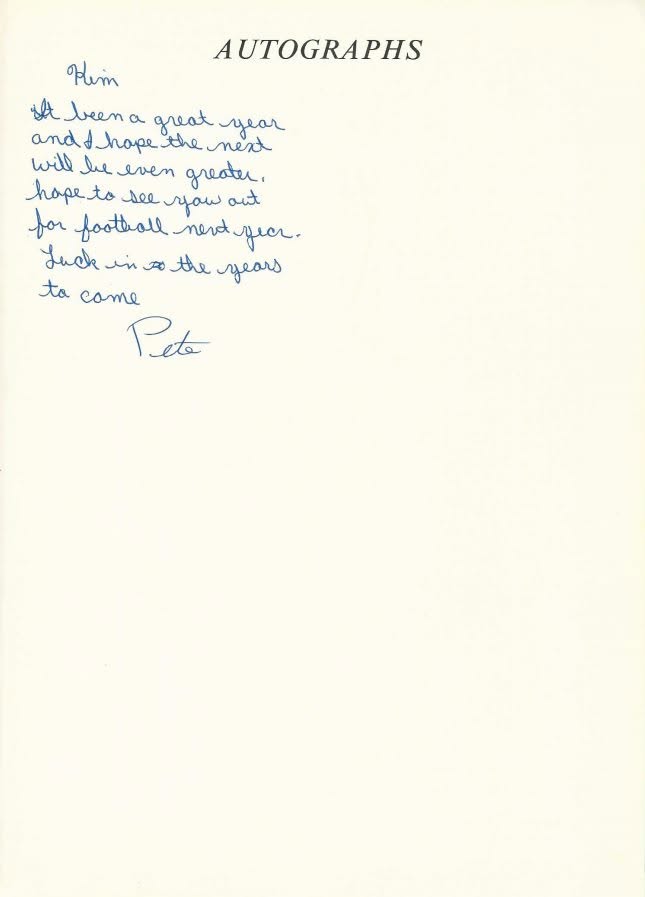 AUTOGRAPHS
Kim
It been a great year
and I hope the next
will be even greater.
hope to see you out
for football next year.
Luck in the years
to come
Pete